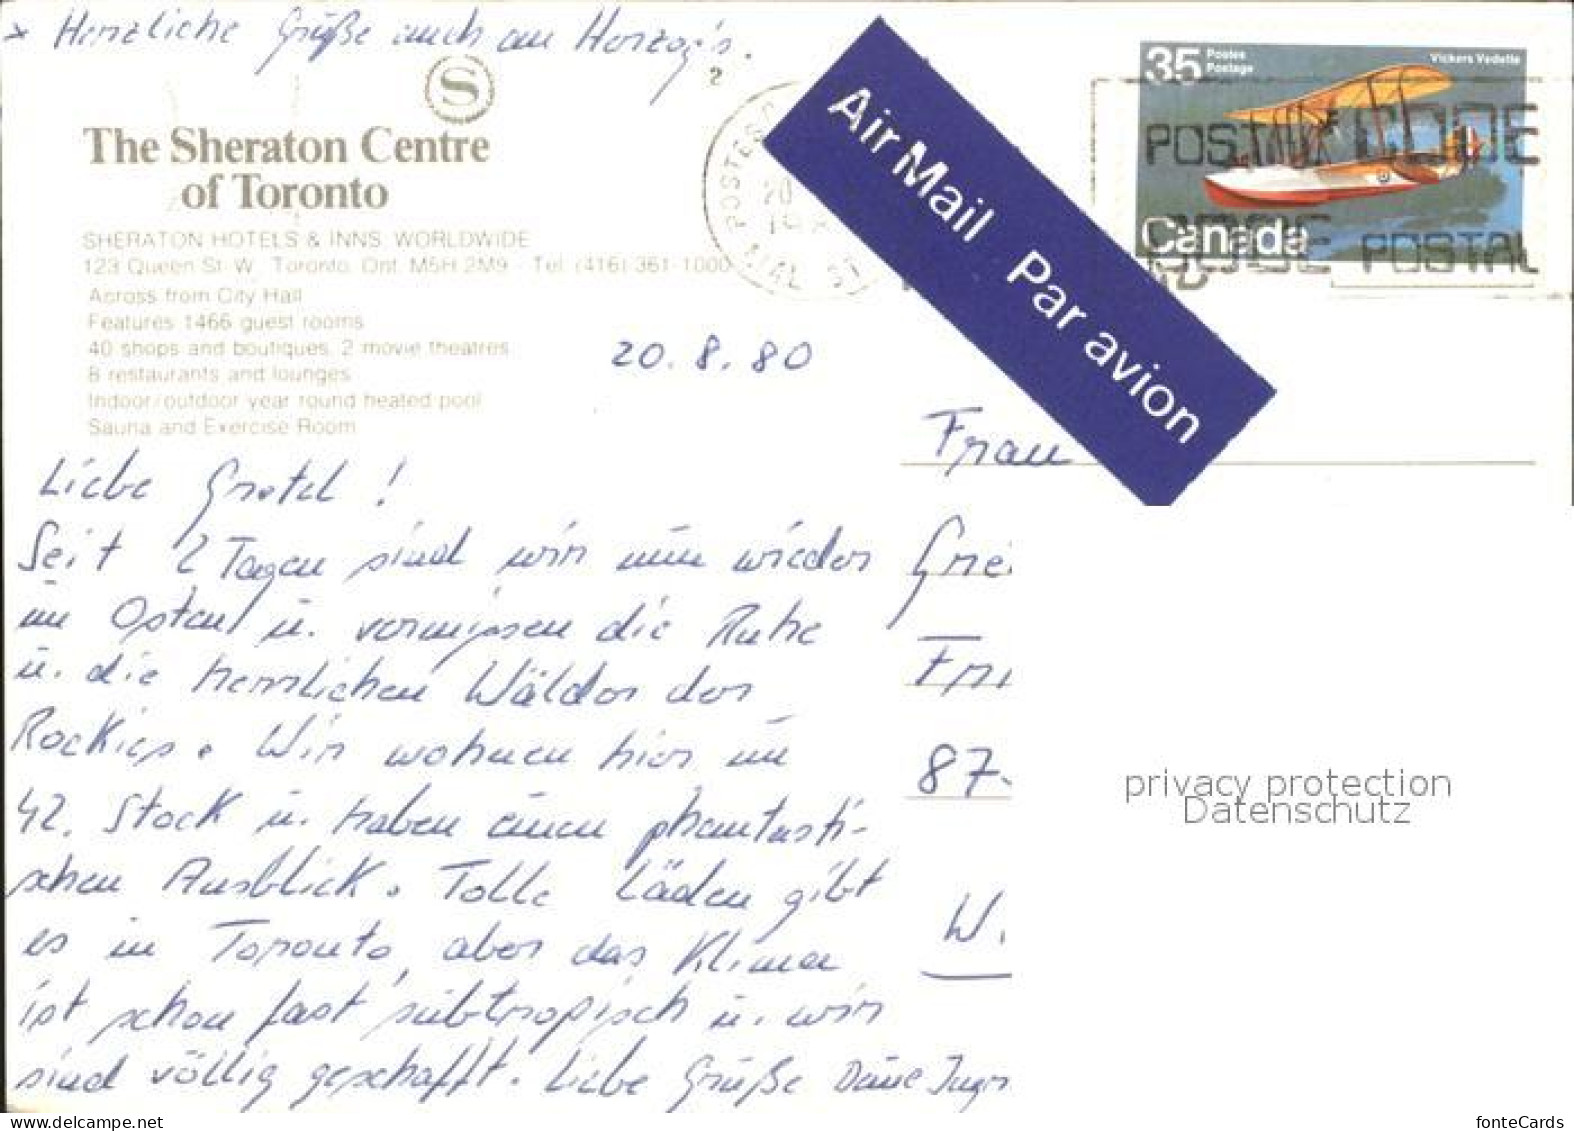 * Herzliche Grüße auch an Herzog's.
S
The Sheraton Centre
of Toronto
SHERATON HOTELS & INNS, WORLDWIDE
123 Queen St. W., Toronto, Ont. M5H 2M9 - Tel. (416) 361-1000
Across from City Hall
Features 1466 guest rooms
40 shops and boutiques, 2 movie theatres
8 restaurants and lounges
Indoor/outdoor year round heated pool
Sauna and Exercise Room
Air Mail Par avion
35 Postes
Postage
Vickers Vedette
Canada
POSTAL CODE
CODE POSTAL
20.8.80
Liebe Gretel!
Seit 2 Tagen sind wir nun wieder
im Osten u. vermissen die Ruhe
u. die herrlichen Wälder der
Rockies. Wir wohnen hier im
42. Stock u. haben einen phantasti-
schen Ausblick. Tolle Läden gibt
es in Toronto, aber das Klima
ist schon fast subtropisch u. wir
sind völlig geschafft. Liebe Grüße Deine
Frau
87-
W.
privacy protection
Datenschutz
www.delcampe.net
fonteCards